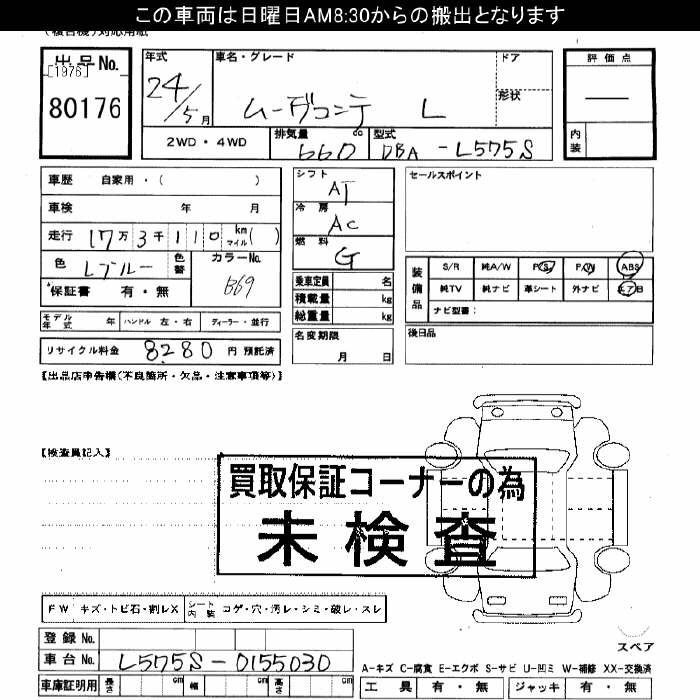 この車両は日曜日AM8:30からの搬出となります
出品No.
[1976]
80176
年式
24/5月
車名・グレード
ムーヴコンテ L
ドア
形状
2WD・4WD
排気量
660 cc
型式
DBA-L575S
評価点
内装
車歴 自家用・( )
車検 年 月
走行 17万3千110 km マイル( )
色 Lブルー
色替
カラーNo. B69
保証書 有・無
モデル年式 年 ハンドル 左・右 ディーラー・並行
リサイクル料金 8280 円 預託済
シフト AT
冷房 AC
燃料 G
乗車定員 名
積載量 kg
総重量 kg
名変期限
月 日
セールスポイント
装備品
S/R 純A/W P/S P/W ABS
純TV 純ナビ 革シート 外ナビ エアB
ナビ型番:
後日品
【出品店申告欄(不良箇所・欠品・注意事項等)】
【検査員記入】
買取保証コーナーの為
未検査
FW キズ・トビ石・割レX シート内装 コゲ・穴・汚レ・シミ・破レ・スレ
スペア
登録No.
車台No. L575S-0155030
車庫証明用 長さ cm 幅 cm 高さ cm
A-キズ C-腐食 E-エクボ S-サビ U-凹ミ W-補修 XX-交換済
工具 有・無 ジャッキ 有・無